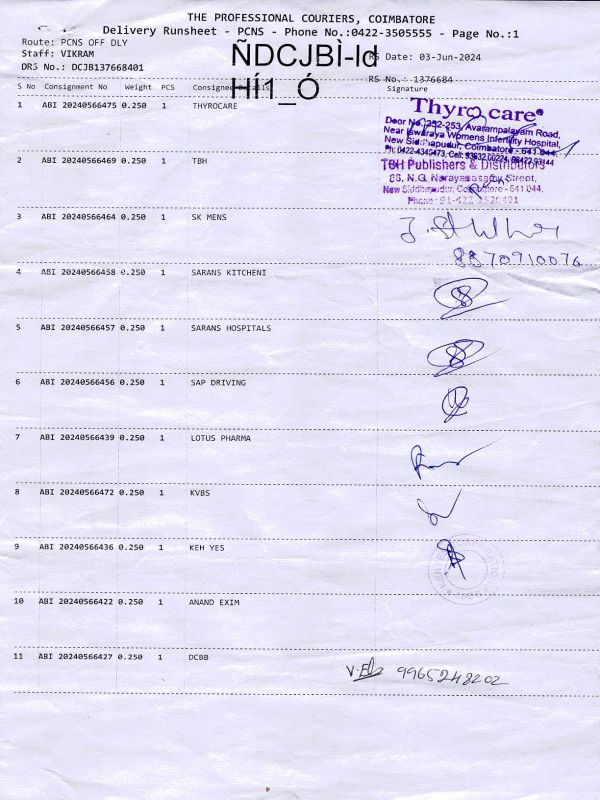 THE PROFESSIONAL COURIERS, COIMBATORE
Delivery Runsheet - PCNS - Phone No.:0422-3505555 - Page No.:1
Route: PCNS OFF DLY
Staff: VIKRAM
RS Date: 03-Jun-2024
DRS No.: DCJB137668401
ÑDCJBÌ-Id
HÍ1_Ó
RS No.: 1376684
S No Consignment No Weight PCS Consignee Details Signature
1 ABI 20240566475 0.250 1 THYROCARE
Thyrocare®
Door No. 252-253, Avarampalayam Road,
Near Iswaraya Womens Infertility Hospital,
New Siddhapudur, Coimbatore - 641 044.
2 ABI 20240566469 0.250 1 TBH
TBH Publishers & Distributors
86, N.G. Narayanasamy Street,
New Siddhapudur, Coimbatore - 641 044.
Phone: 91-422
3 ABI 20240566464 0.250 1 SK MENS
8870910076
4 ABI 20240566458 0.250 1 SARANS KITCHENI
5 ABI 20240566457 0.250 1 SARANS HOSPITALS
6 ABI 20240566456 0.250 1 SAP DRIVING
7 ABI 20240566439 0.250 1 LOTUS PHARMA
8 ABI 20240566472 0.250 1 KVBS
9 ABI 20240566436 0.250 1 KEH YES
10 ABI 20240566422 0.250 1 ANAND EXIM
11 ABI 20240566427 0.250 1 DCBB
9965248202